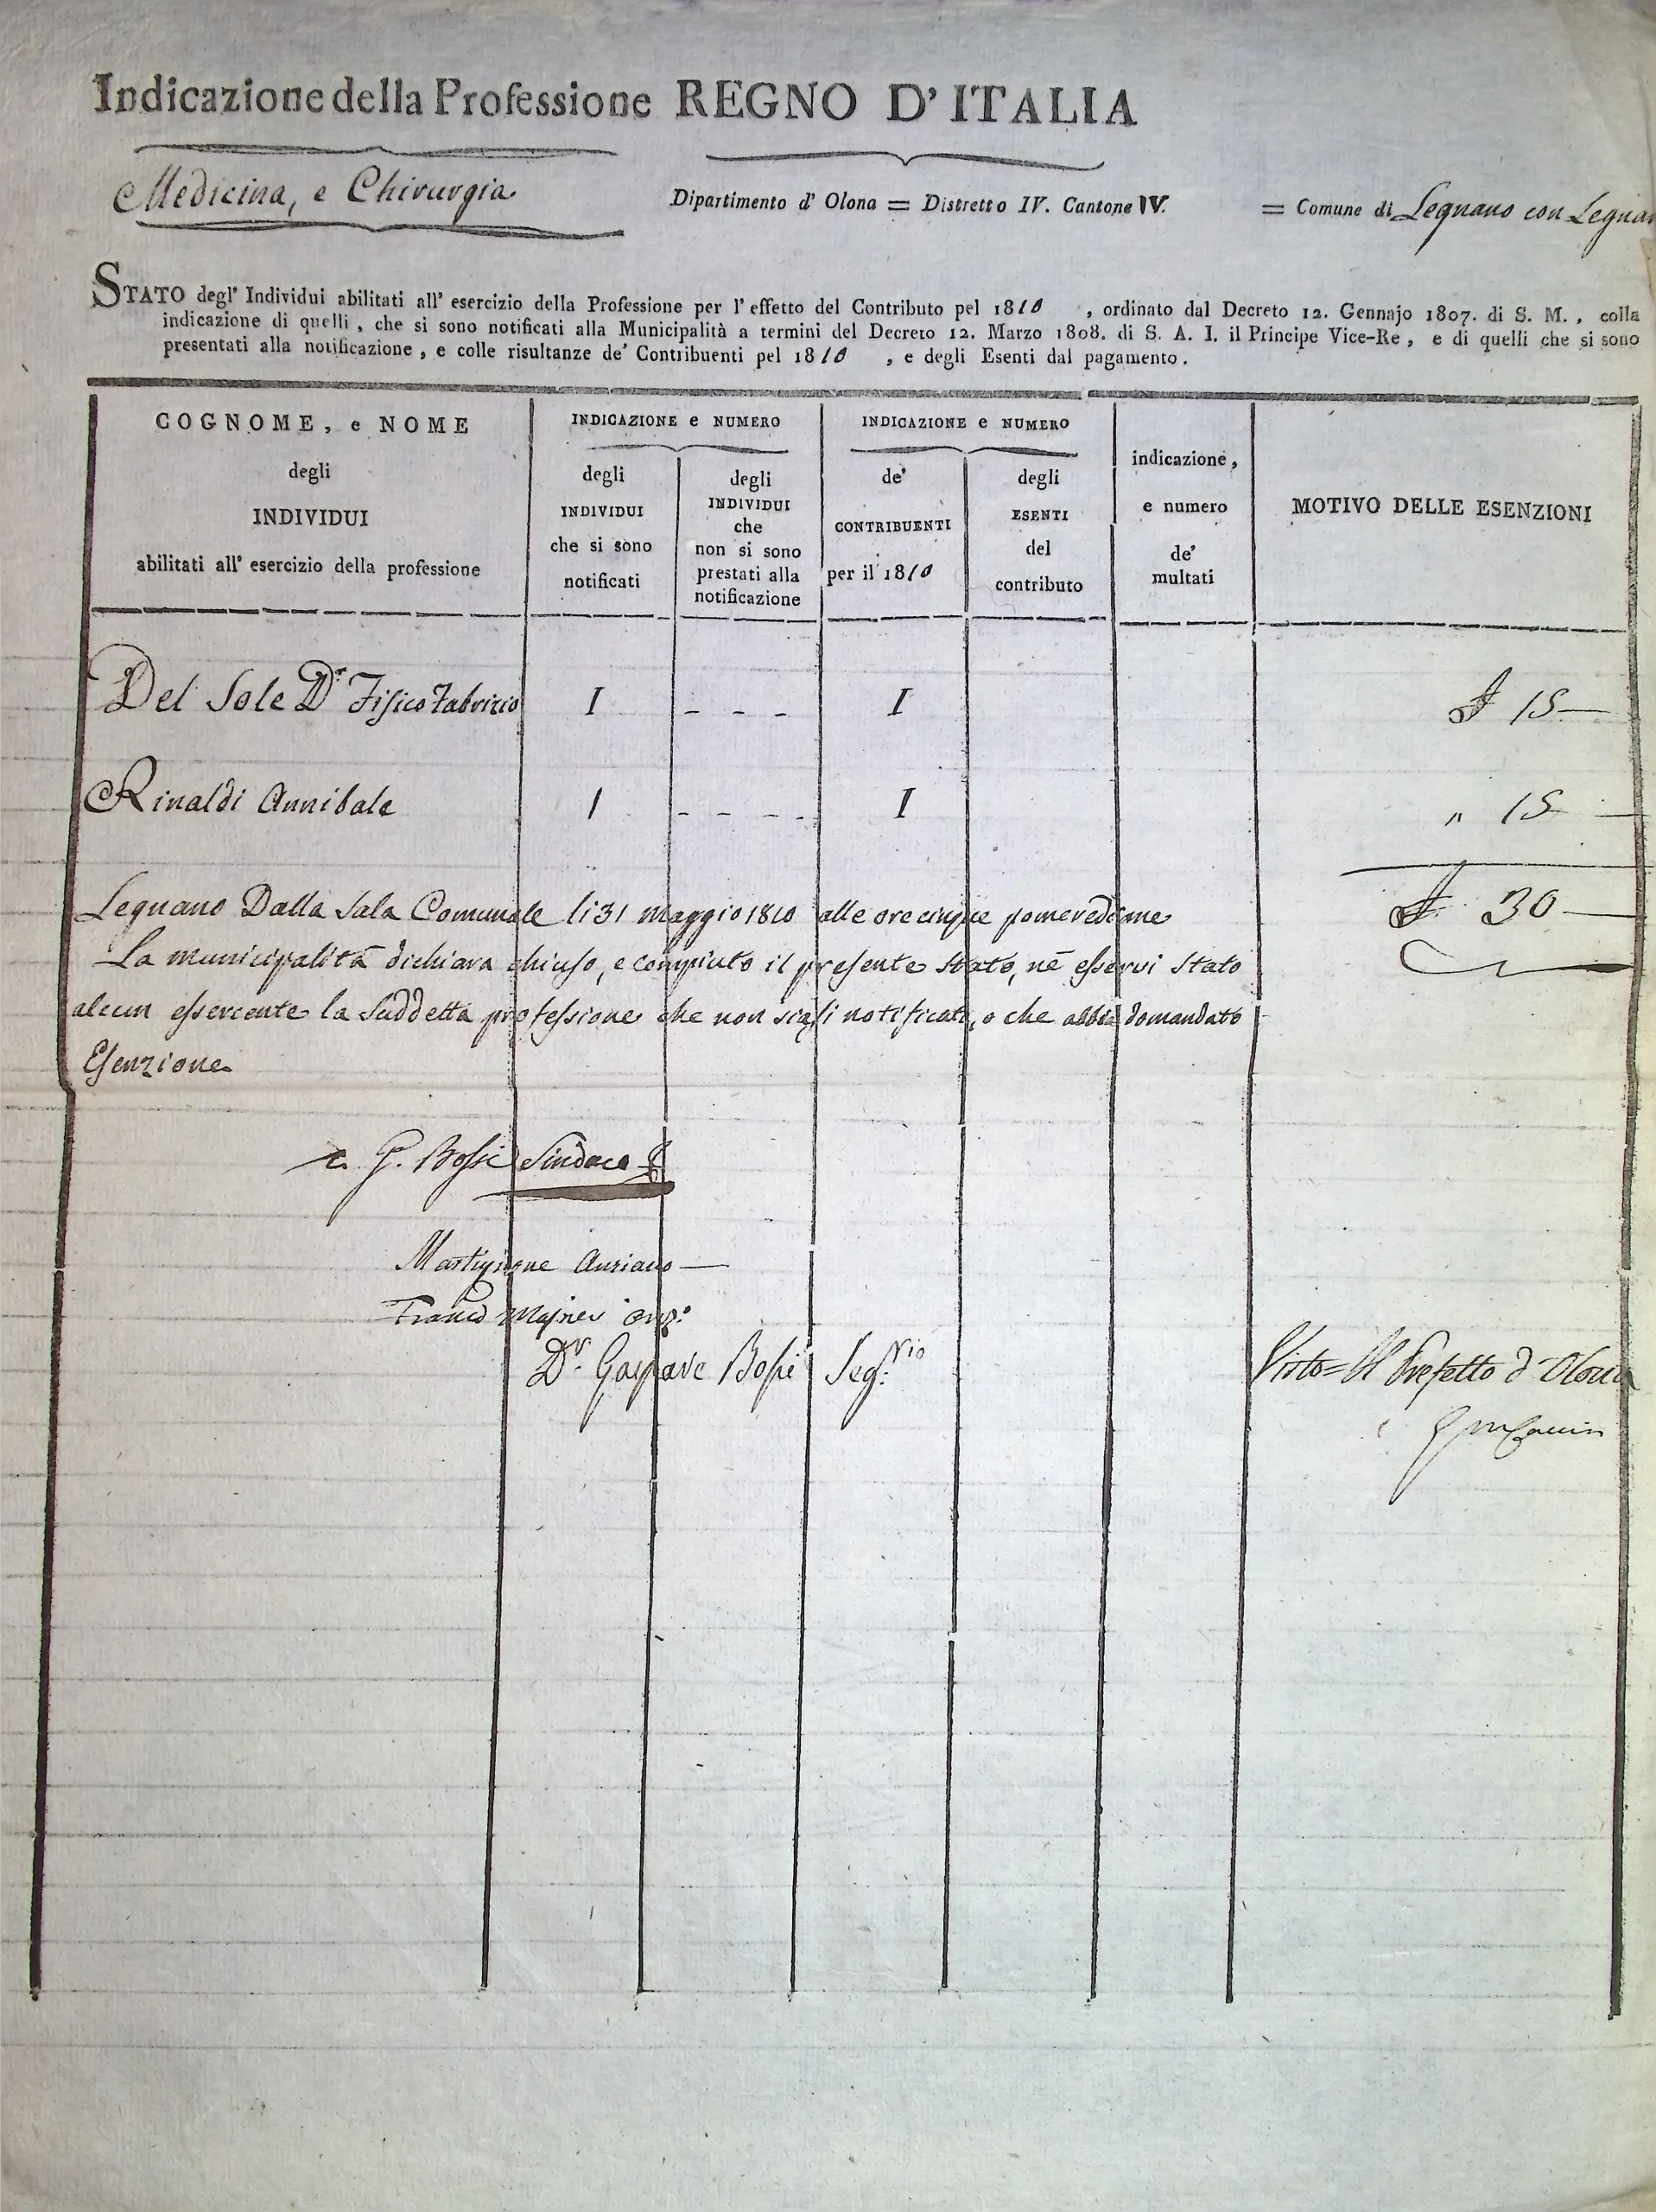 Indicazione della Professione REGNO D' ITALIA
Medicina, e Chirurgia
Dipartimento d' Olona = Distretto IV. Cantone IV. = Comune di Legnano con
STATO degl' Individui abilitati all' esercizio della Professione per l' effetto del Contributo pel 1810 , ordinato dal Decreto 12. Gennajo 1807. di S. M. , colla
indicazione di quelli , che si sono notificati alla Municipalità a termini del Decreto 12. Marzo 1808. di S. A. I. il Principe Vice-Re , e di quelli che si sono
presentati alla notificazione , e colle risultanze de' Contribuenti pel 1810 , e degli Esenti dal pagamento .
COGNOME , e NOME
degli
INDIVIDUI
abilitati all' esercizio della professione
INDICAZIONE e NUMERO
degli
INDIVIDUI
che si sono
notificati
degli
INDIVIDUI
che
non si sono
prestati alla
notificazione
INDICAZIONE e NUMERO
de'
CONTRIBUENTI
per il 1810
degli
ESENTI
del
contributo
indicazione ,
e numero
de'
multati
MOTIVO DELLE ESENZIONI
Del Sole Dr Fisico Fabrizio I - - - I 15 —
Rinaldi Annibale 1 - - - - I " 15 —
30 —
Legnano Dalla Sala Comunale li 31 maggio 1810 alle ore cinque pomeridiane
La municipalità dichiara chiuso, e compiuto il presente Stato, nè esservi Stato
alcun essercente la Suddetta professione che non siasi notificato, o che abbia domandato
Esenzione
G. Bossi Sindaco
Martignone Anziano —
Dr. Gaspare Bossi Seg.rio
Visto = Il Prefetto d'Olona